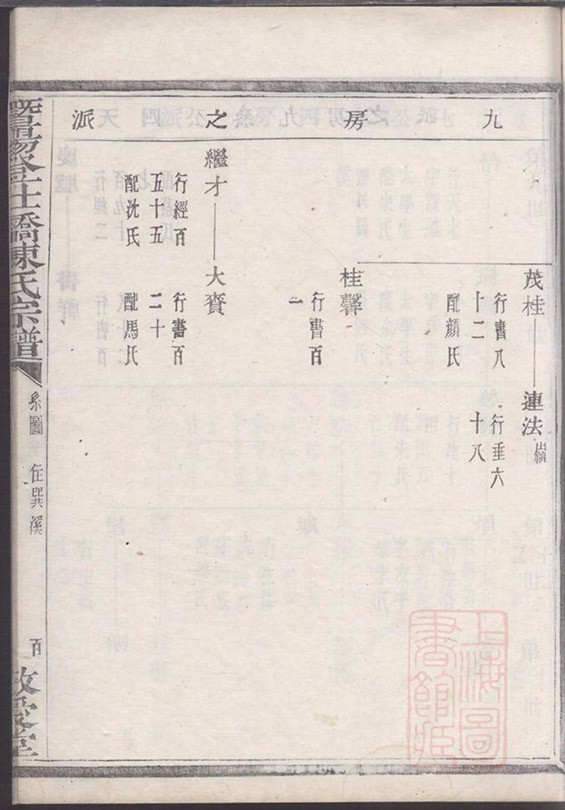 九房之派
茂桂
行書八
十二
配顔氏
連法
嗣
行垂六
十八
桂馨
行書百
一
繼才
行經百
五十五
配沈氏
大賚
行書百
二十
配馬氏
暨陽
橋陳氏宗譜
系圖
百
敬愛堂
上海圖
書館藏